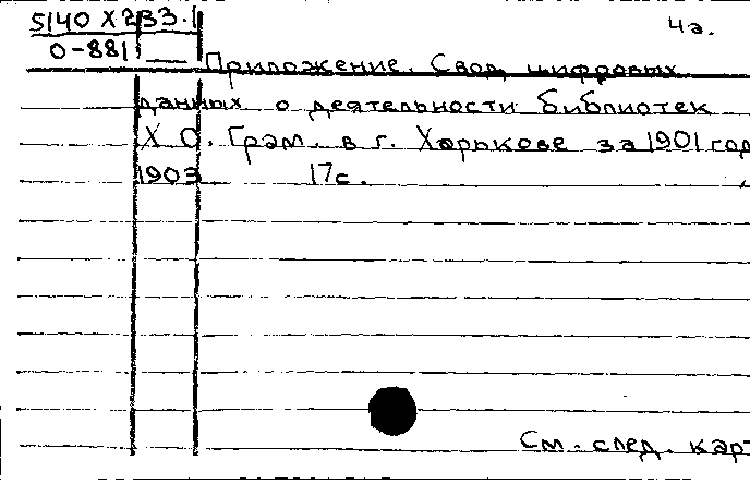 5140 X 233.1 4а.
0-881
Приложение. Свод цифровых
данных о деятельности библиотек
Х О. Грам. в г. Харькове за 1901 год
1903 17с.
См. след. карт